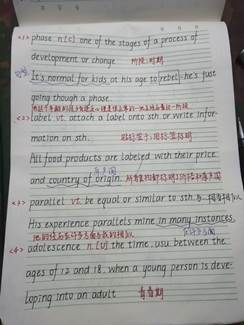 <1> phase n[c] one of the stages of a process of
development or change 阶段;时期
It's normal for kids at his age to rebel; he's just
going though a phase.
<2> label vt. attach a label onto sth. or write infor-
mation on sth. 贴标签于;用标签标明
All food products are labeled with their price
and country of origin.
<3> parallel vt. be equal or similar to sth.
His experience parallels mine in many instances.
在许多方面
他的经历在许多方面与我的相似
<4> adolescence n.[U] the time, usu. between the
ages of 12 and 18. when a young person is deve-
loping into an adult 青春期